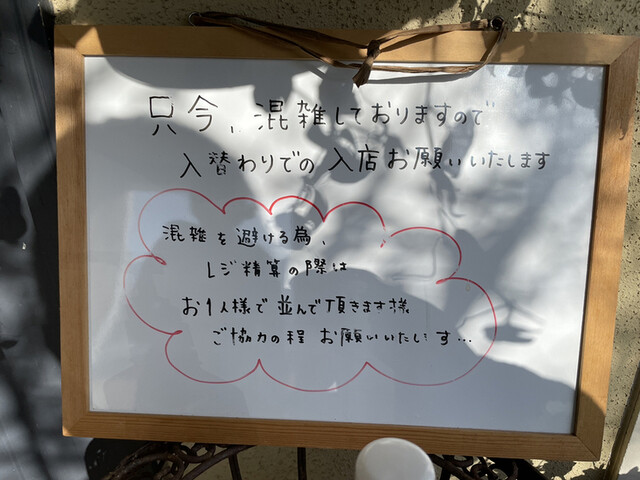 只今、混雑しておりますので
入替わりでの入店お願いいたします
混雑を避ける為、
レジ精算の際は
お1人様で並んで頂きます様
ご協力の程 お願いいたします…